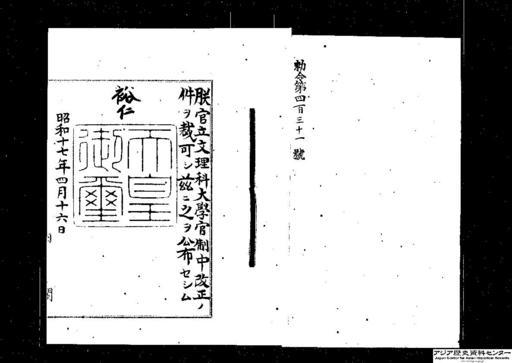 勅令第四百三十一號
朕官立文理科大學官制中改正ノ
件ヲ裁可シ茲ニ之ヲ公布セシム
裕仁
天皇
御璽
昭和十七年四月十六日
アジア歴史資料センター
Japan Center for Asian Historical Records